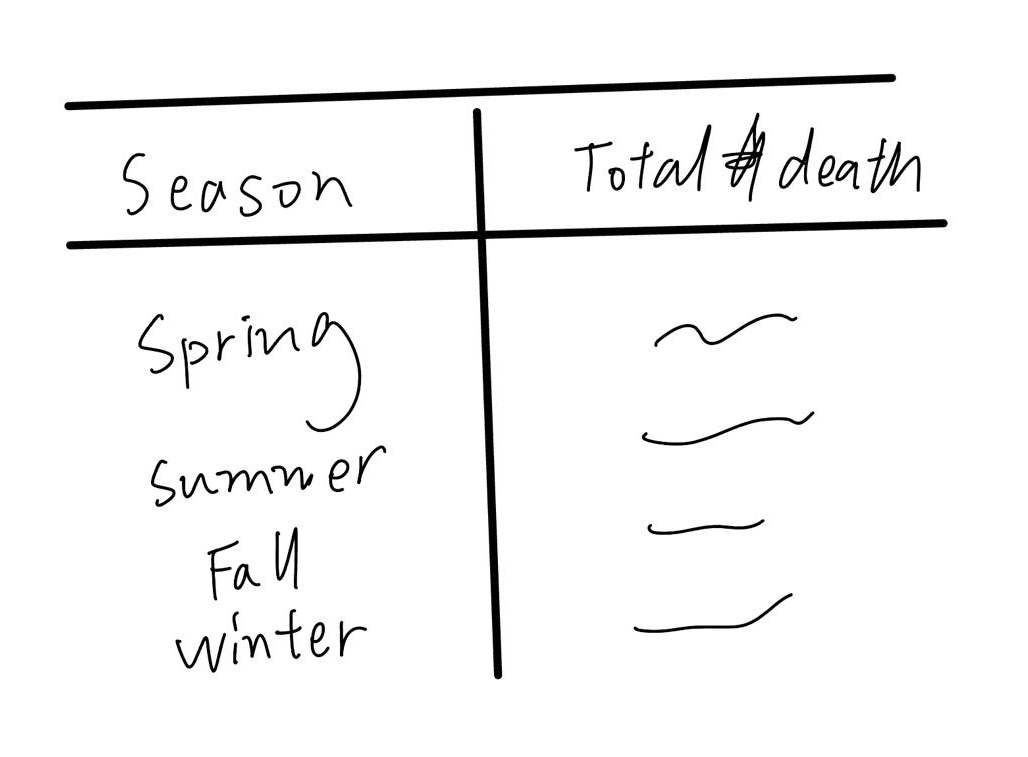 Season
Total # death
Spring
Summer
Fall
winter